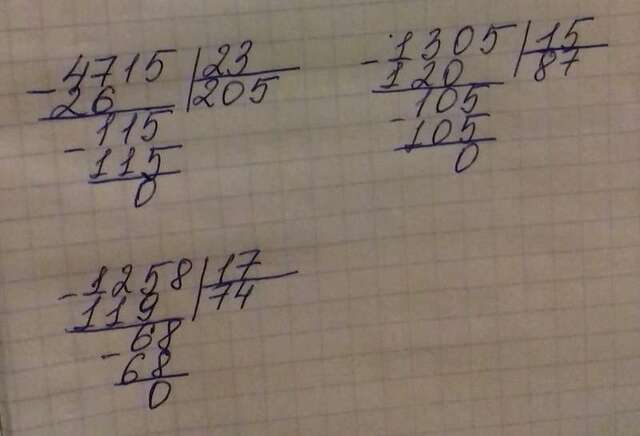 -4715 | 23
26 | 205
-115
115
0
-1305 | 15
120 | 87
-105
105
0
-1258 | 17
119 | 74
-68
68
0